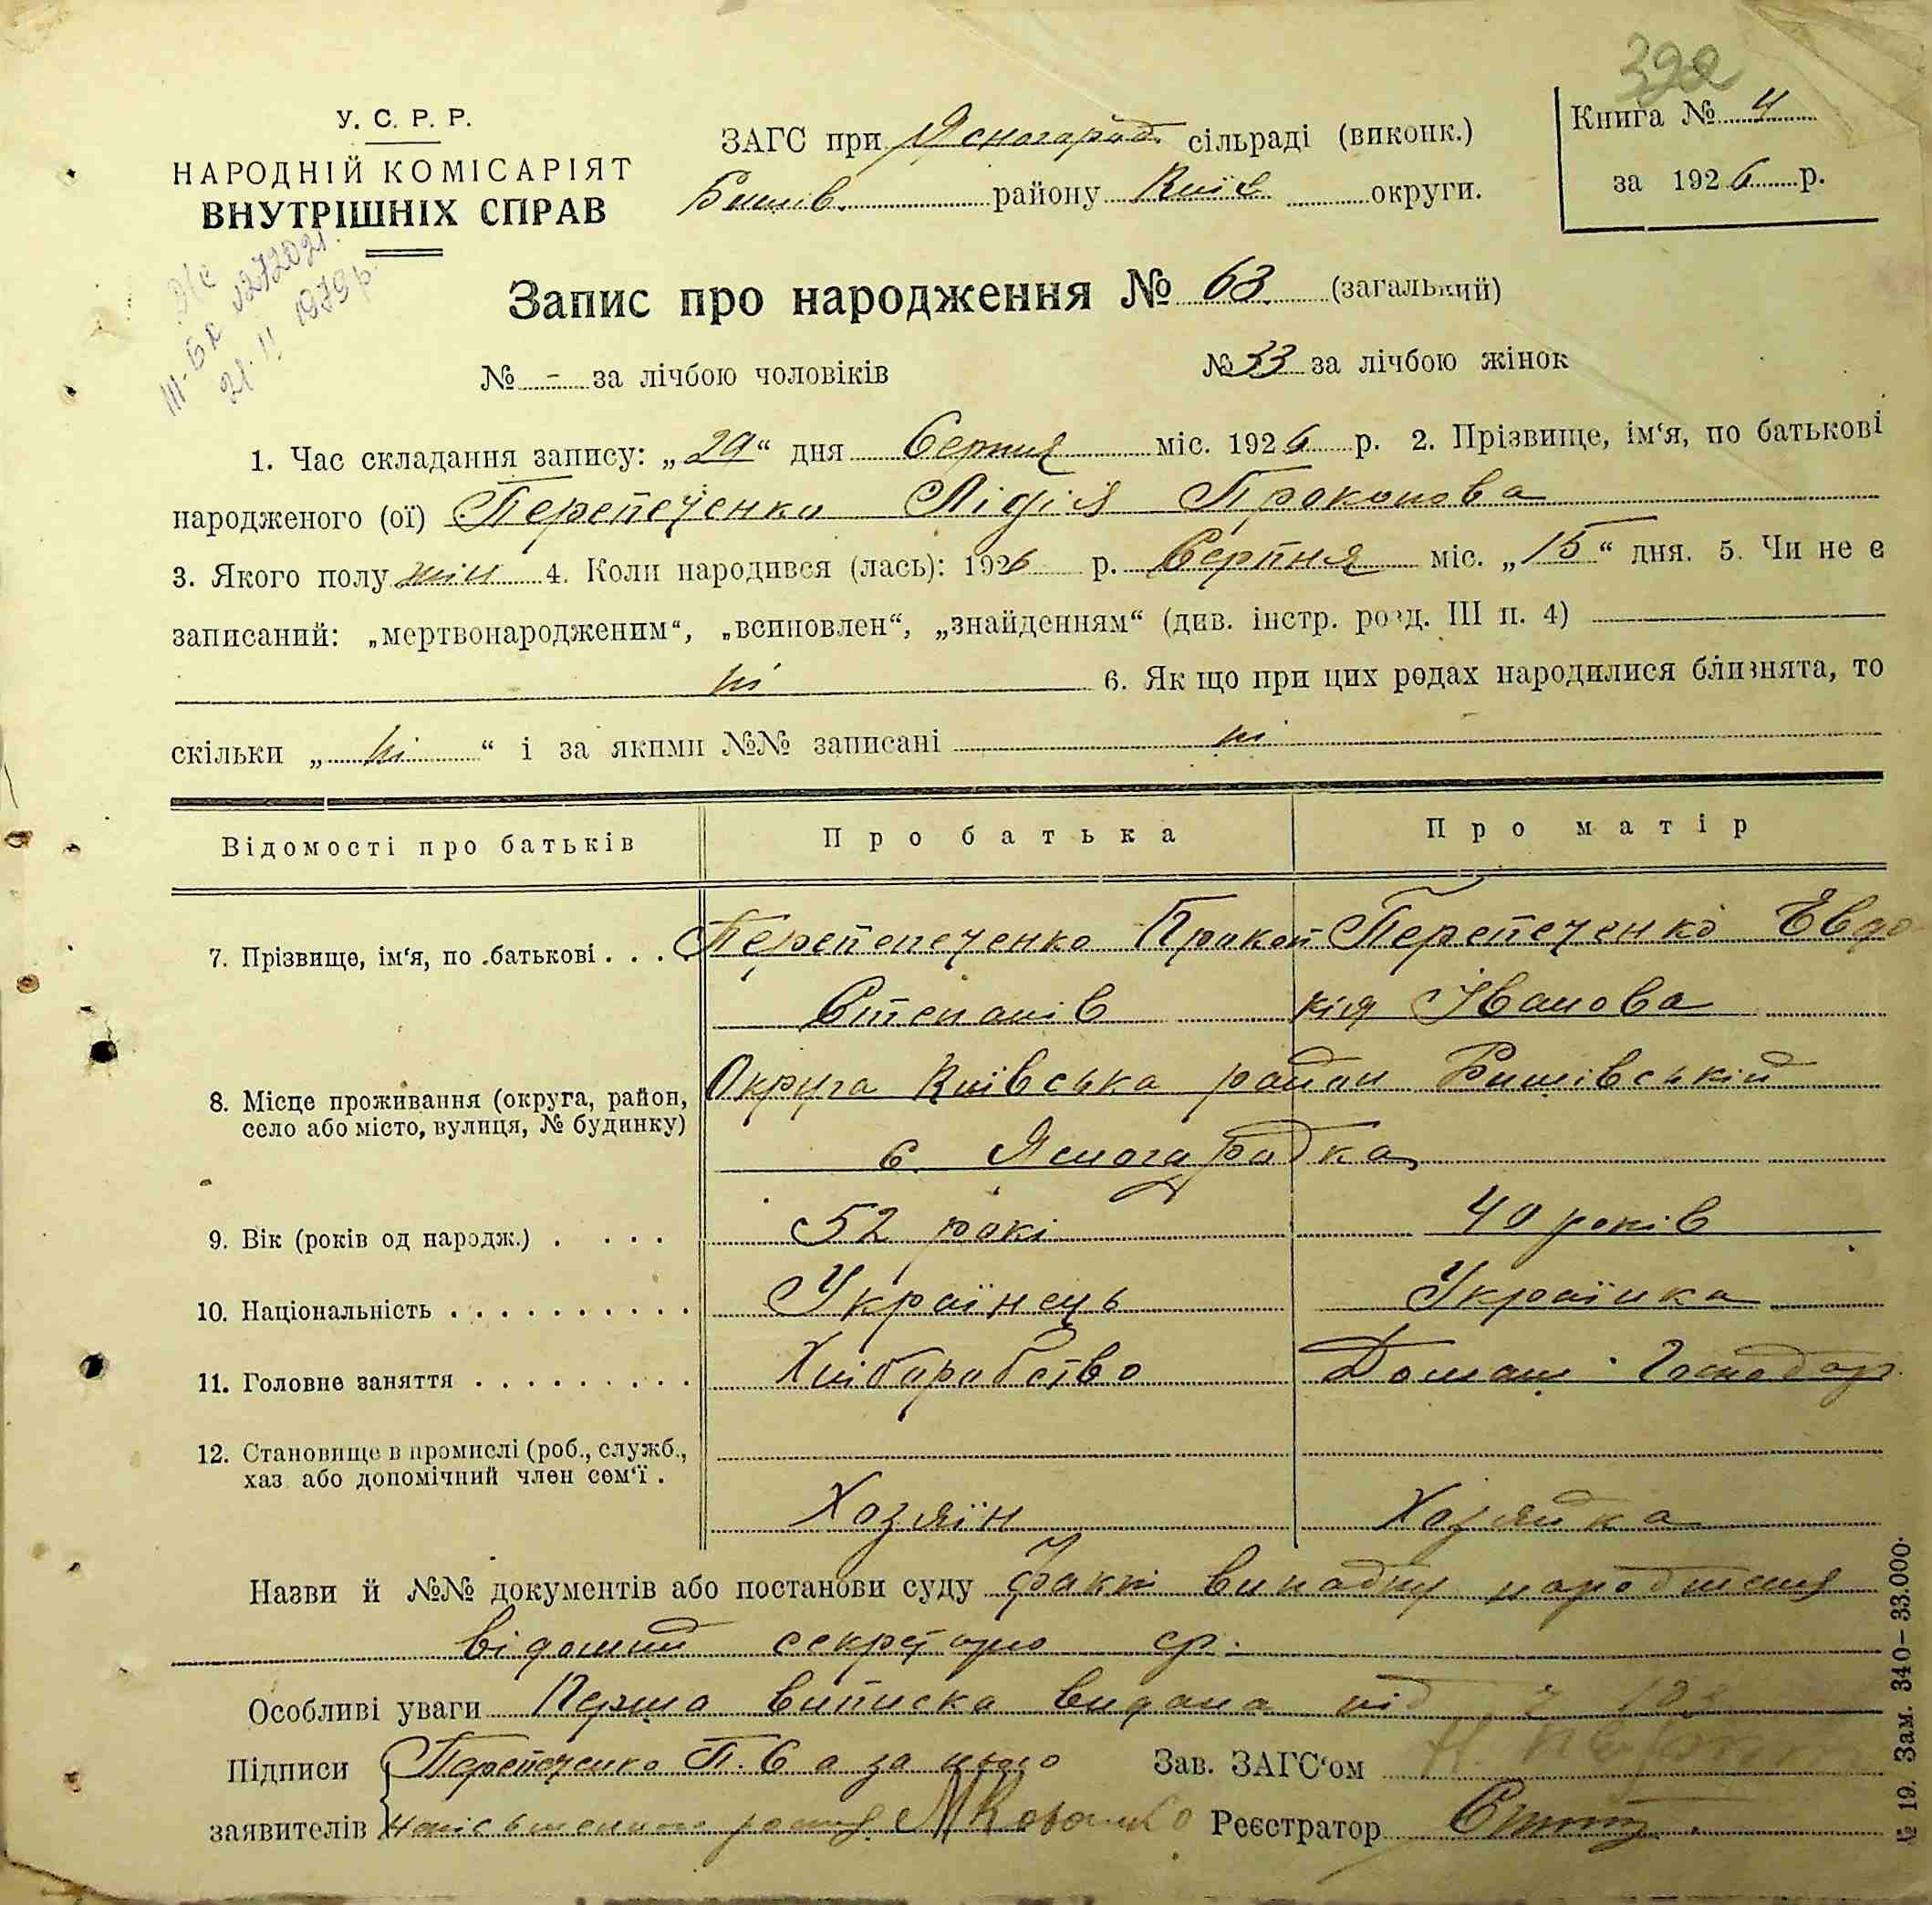 322
У. С. Р. Р.
НАРОДНІЙ КОМІСАРІЯТ
ВНУТРІШНІХ СПРАВ
ЗАГС при Ясногород. сільраді (виконк.)
Бишів. району Київ округи.
Книга № 4
за 1926 р.
III-БК № 272021
21.II 1979р.
Запис про народження № 63 (загальний)
№ - за лічбою чоловіків
№ 33 за лічбою жінок
1. Час складання запису: „29“ дня Серпня міс. 1926 р. 2. Прізвище, ім‘я, по батькові
народженого (ої) Перепеченко Лідія Прокопова
3. Якого полу жін 4. Коли народився (лась): 1926 р. Серпня міс. „15“ дня. 5. Чи не є
записаний: „мертвонародженим“, „всиновлен“, „знайденням“ (див. інстр. розд. III п. 4)
ні 6. Як що при цих родах народилися близнята, то
скільки „ ні “ і за якими №№ записані ні
Відомості про батьків
Про батька
Про матір
7. Прізвище, ім‘я, по батькові . . . .
Перепепеченко Прокоп
Перепеченко Євдо
Степанів
кія Іванова
8. Місце проживання (округа, район,
село або місто, вулиця, № будинку)
Округа Київська район Бишівський
с. Ясногородка
9. Вік (років од народж.) . . . .
52 рокі
40 років
10. Національність . . . . . . . . . .
Українець
Українка
11. Головне заняття . . . . . . . . .
Хліборобство
Домаш. Господар.
12. Становище в промислі (роб., служб.,
хаз або допомічний член сем‘ї .
Хозяїн
Хозяйка
Назви й №№ документів або постанови суду Факт випадку народження
відомий секретарю ср.
Особливі уваги Перша виписка видана під
Підписи Перепеченко П. С а за нього
Зав. ЗАГС‘ом
заявителів
Реєстратор
№ 19. Зам. 340—33.000.